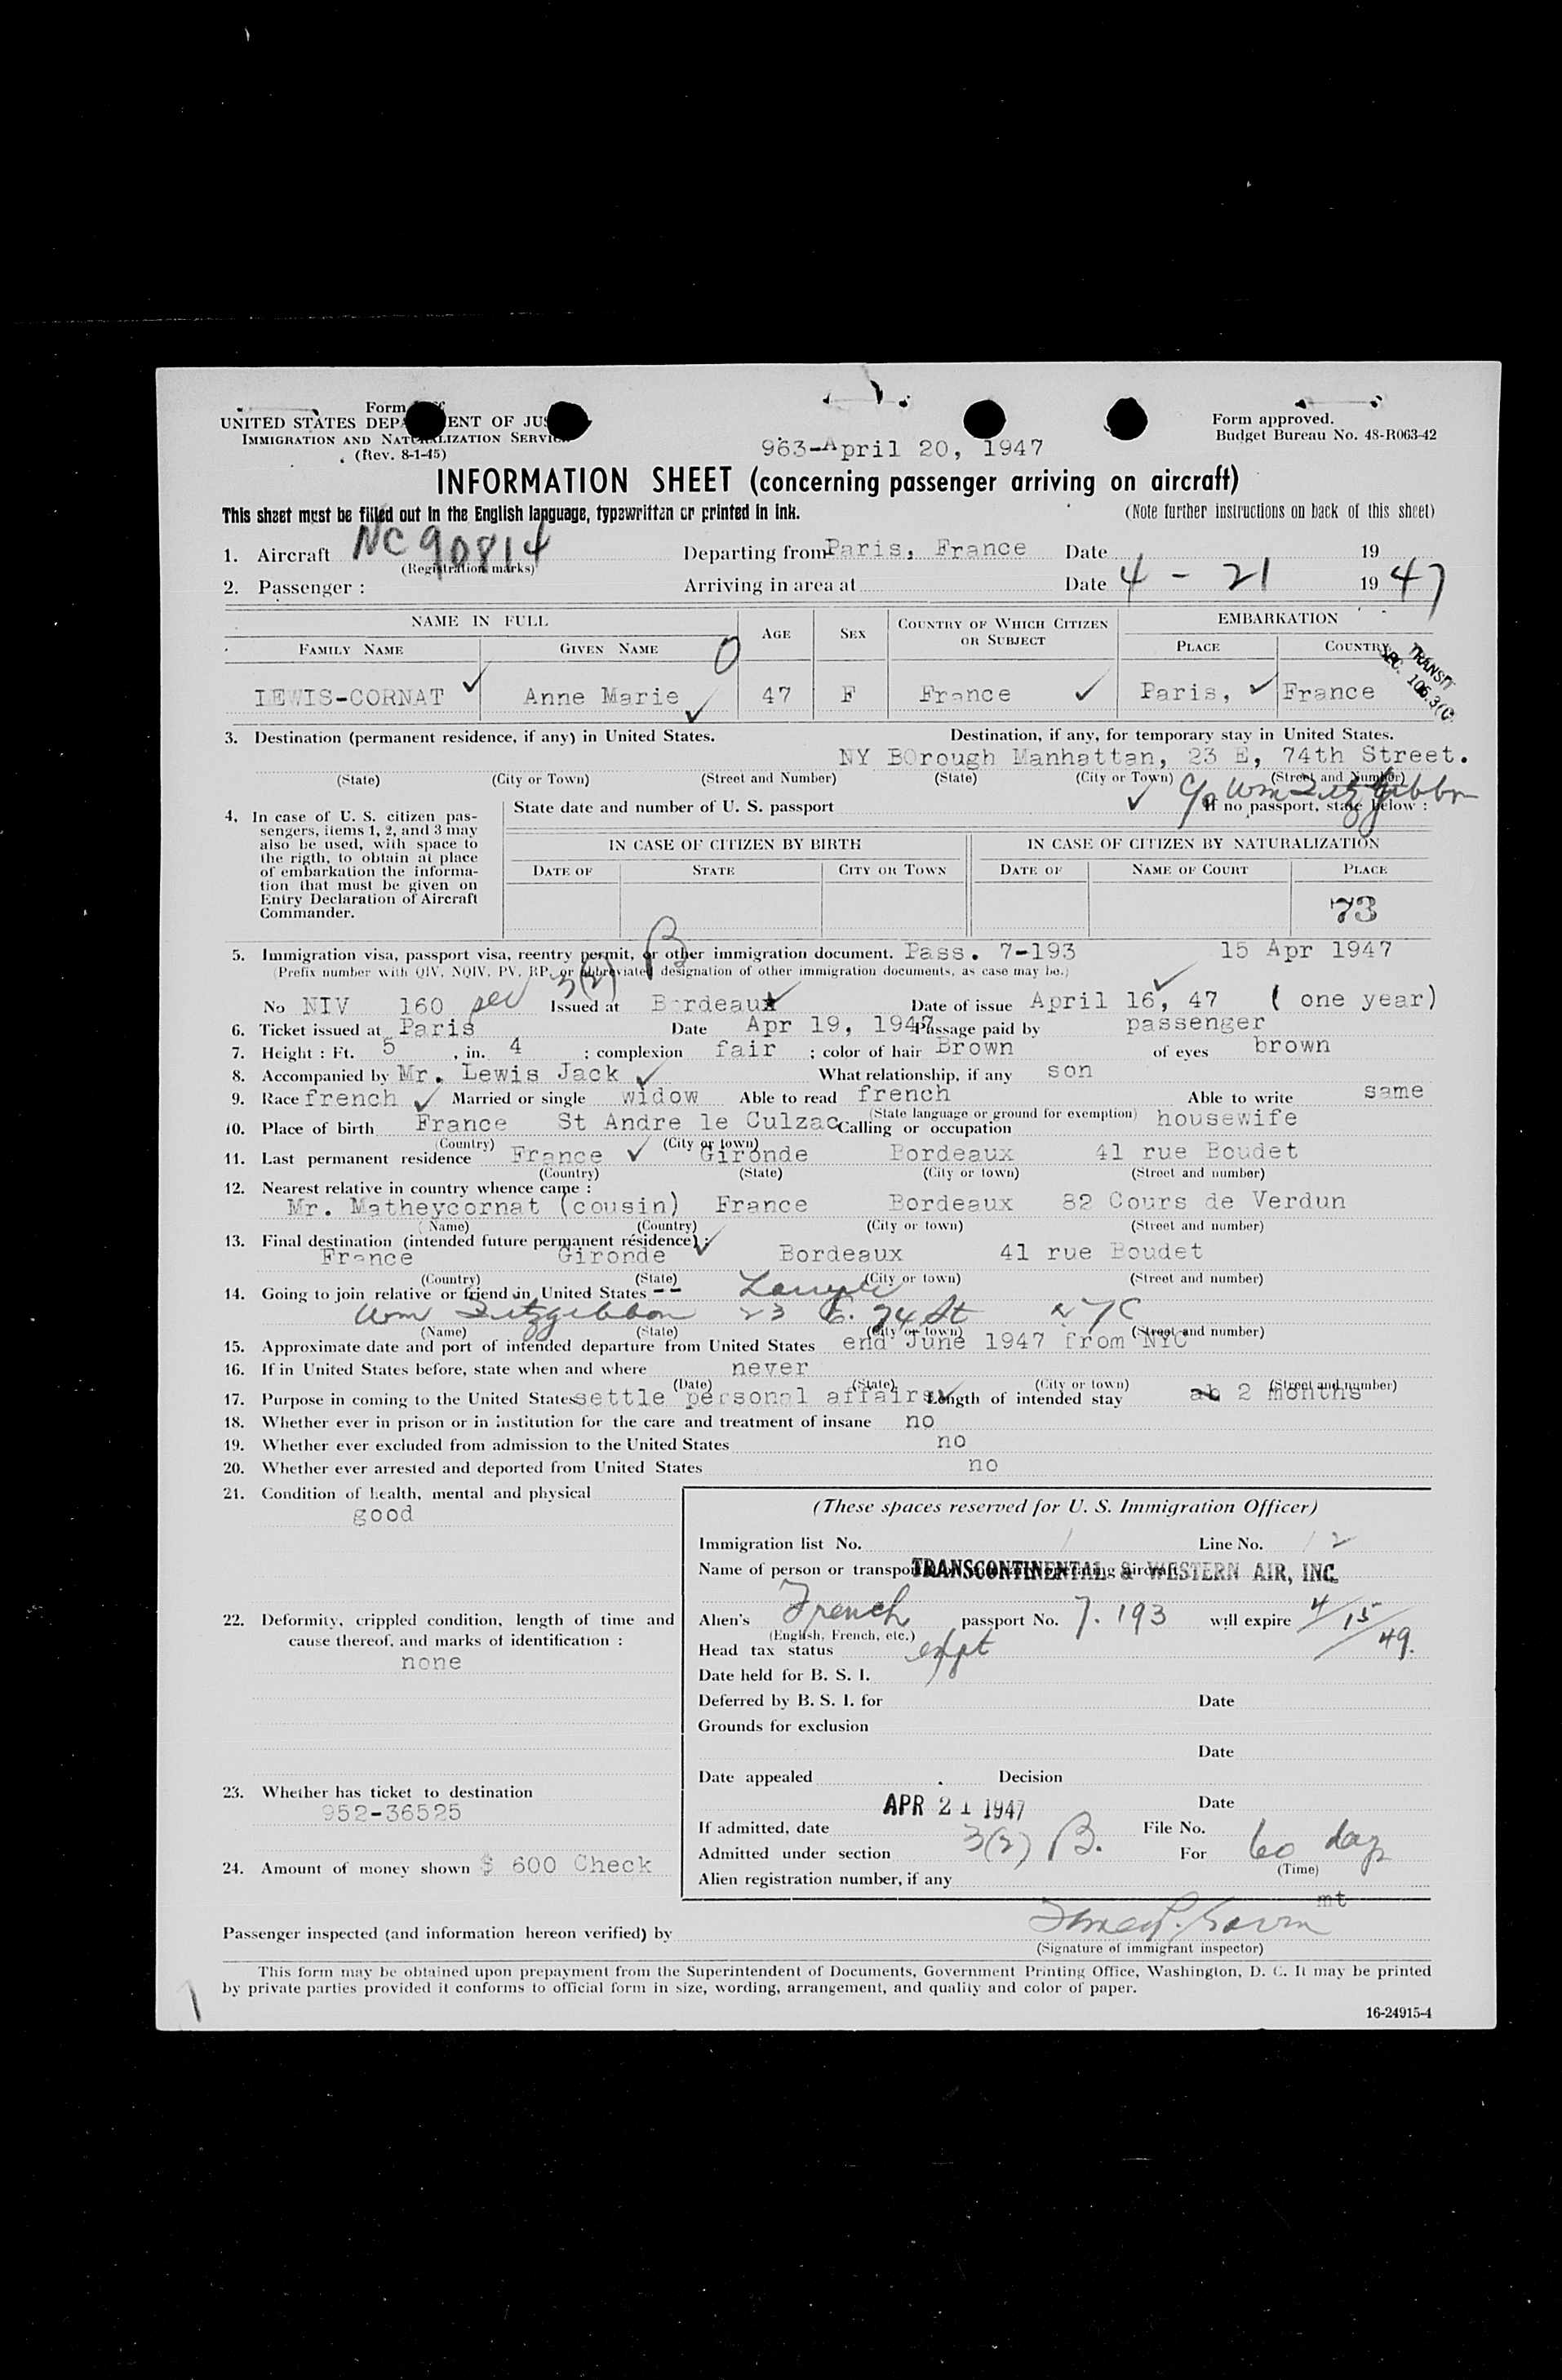 Form
UNITED STATES DEPA ENT OF JUS
IMMIGRATION AND NATURALIZATION SERVICE
(Rev. 8-1-45)
Form approved.
Budget Bureau No. 48-R063-42
963-April 20, 1947
INFORMATION SHEET (concerning passenger arriving on aircraft)
This sheet must be filled out in the English language, typewritten or printed in ink.
(Note further instructions on back of this sheet)
1. Aircraft NC 90814 Departing from Paris, France Date 19
(Registration marks)
2. Passenger : Arriving in area at Date 4 - 21 19 47
NAME IN FULL AGE SEX COUNTRY OF WHICH CITIZEN OR SUBJECT EMBARKATION
FAMILY NAME GIVEN NAME O PLACE COUNTRY
TRANSIT
SEC. 106.3(C)
LEWIS-CORNAT Anne Marie 47 F France Paris, France
3. Destination (permanent residence, if any) in United States. Destination, if any, for temporary stay in United States.
NY BOrough Manhattan, 23 E, 74th Street.
(State) (City or Town) (Street and Number) (State) (City or Town) (Street and Number)
C/o Wm Fitzgibbon
4. In case of U. S. citizen passengers, items 1, 2, and 3 may
also be used, with space to
the rigth, to obtain at place
of embarkation the information
that must be given on
Entry Declaration of Aircraft
Commander.
State date and number of U. S. passport If no passport, state below :
IN CASE OF CITIZEN BY BIRTH IN CASE OF CITIZEN BY NATURALIZATION
DATE OF STATE CITY OR TOWN DATE OF NAME OF COURT PLACE
73
5. Immigration visa, passport visa, reentry permit, or other immigration document. Pass. 7-193 15 Apr 1947
(Prefix number with QIV, NQIV, PV, RP, or abbreviated designation of other immigration documents, as case may be.)
No NIV 160 sec 3(2) B Issued at Bordeaux Date of issue April 16, 47 ( one year)
6. Ticket issued at Paris Date Apr 19, 1947 Passage paid by passenger
7. Height : Ft. 5 , in. 4 ; complexion fair ; color of hair Brown of eyes brown
8. Accompanied by Mr. Lewis Jack What relationship, if any son
9. Race french Married or single widow Able to read french Able to write same
(State language or ground for exemption)
10. Place of birth France St Andre le Culzac Calling or occupation housewife
(Country) (City or town)
11. Last permanent residence France Gironde Bordeaux 41 rue Boudet
(Country) (State) (City or town) (Street and number)
12. Nearest relative in country whence came :
Mr. Matheycornat (cousin) France Bordeaux 82 Cours de Verdun
(Name) (Country) (City or town) (Street and number)
13. Final destination (intended future permanent résidence) :
France Gironde Bordeaux 41 rue Boudet
(Country) (State) (City or town) (Street and number)
14. Going to join relative or friend in United States --
Wm Fitzgibbon 23 E. 74 St NYC
(Name) (State) (City or town) (Street and number)
15. Approximate date and port of intended departure from United States end June 1947 from NYC
16. If in United States before, state when and where never
(Date) (State) (City or town) (Street and number)
17. Purpose in coming to the United States settle personal affairs Length of intended stay ab 2 months
18. Whether ever in prison or in institution for the care and treatment of insane no
19. Whether ever excluded from admission to the United States no
20. Whether ever arrested and deported from United States no
21. Condition of health, mental and physical
good
22. Deformity, crippled condition, length of time and
cause thereof, and marks of identification :
none
23. Whether has ticket to destination
952-36525
24. Amount of money shown $ 600 Check
(These spaces reserved for U. S. Immigration Officer)
Immigration list No. 1 Line No. 12
Name of person or transpor
TRANSCONTINENTAL & WESTERN AIR, INC.
Alien's French passport No. 7.193 will expire 4/15/49.
(English, French, etc.)
Head tax status expt
Date held for B. S. I.
Deferred by B. S. I. for Date
Grounds for exclusion
Date
Date appealed Decision
APR 21 1947 Date
If admitted, date File No.
Admitted under section 3(2) B. For 60 days
(Time)
Alien registration number, if any
mt
Passenger inspected (and information hereon verified) by
(Signature of immigrant inspector)
This form may be obtained upon prepayment from the Superintendent of Documents, Government Printing Office, Washington, D. C. It may be printed
by private parties provided it conforms to official form in size, wording, arrangement, and quality and color of paper.
16-24915-4